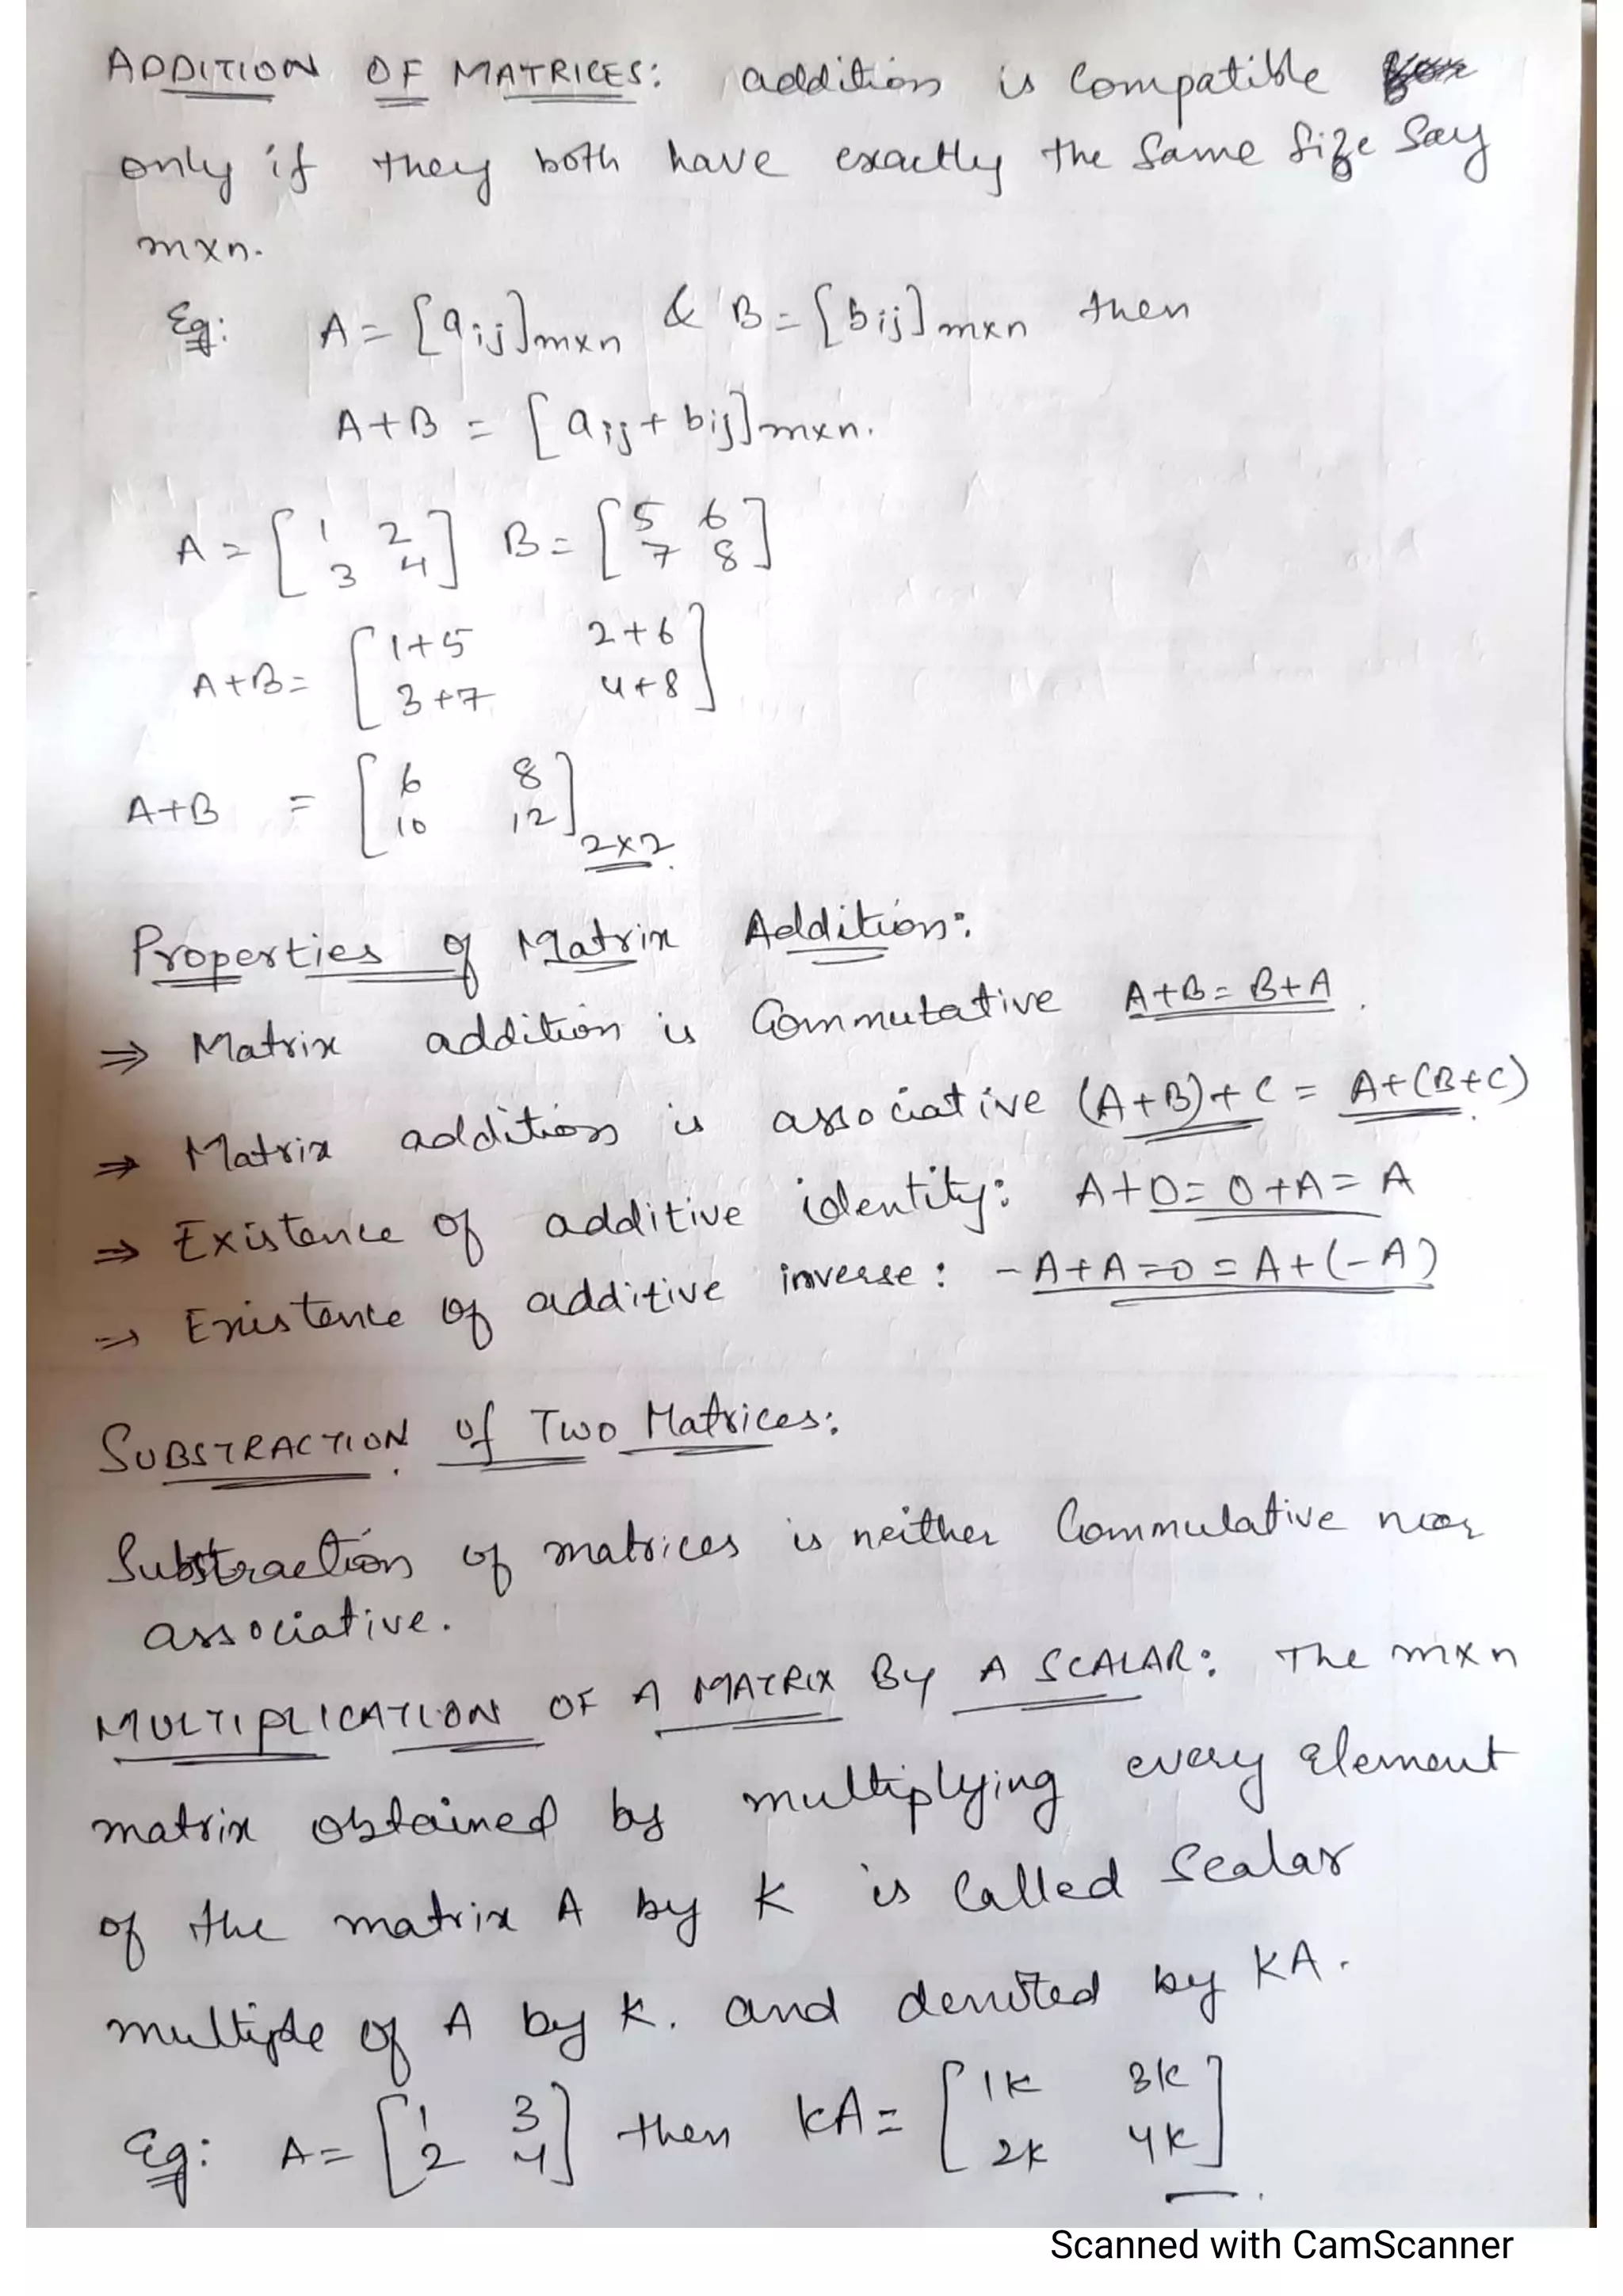 ADDITION OF MATRICES: addition is Compatible
only if they both have exactly the Same Size Say
m×n.
Eg: A = [aij]m×n & B = [bij]m×n then
A+B = [aij + bij]m×n.
A = [1 2 3 4] B = [5 6 7 8]
A+B = [1+5 2+6
3+7 4+8]
A+B = [6 8
10 12]2×2.
Properties of Matrix Addition:
⇒ Matrix addition is Commutative A+B = B+A.
⇒ Matrix addition is associative (A+B)+C = A+(B+C).
⇒ Existence of additive identity: A+0=0+A=A
⇒ Existence of additive inverse: -A+A=0=A+(-A)
SUBSTRACTION of Two Matrices:
Substraction of matrices is neither Commulative nor
associative.
MULTIPLICATION OF A MATRIX By A SCALAR: The m×n
matrix obtained by multiplying every element
of the matrix A by K is Called Scalar
multiple of A by K. and denoted by KA.
Eg: A = [1 3 2 4] then KA = [1K 3K 2K 4K].
Scanned with CamScanner